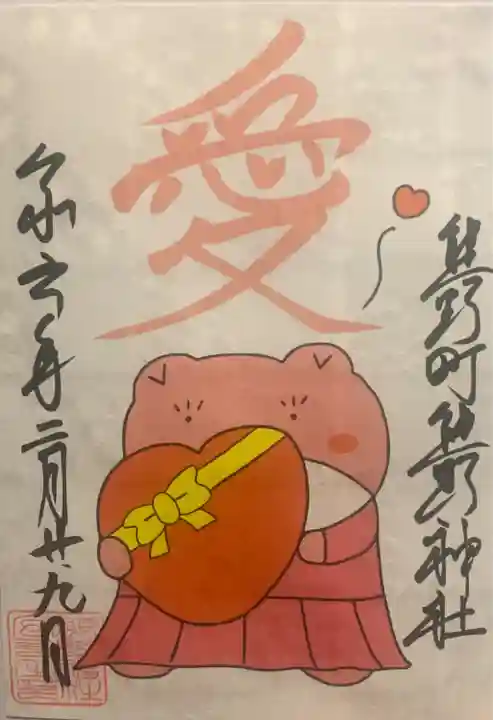 愛
熊野町熊野神社
令和六年二月廿九日